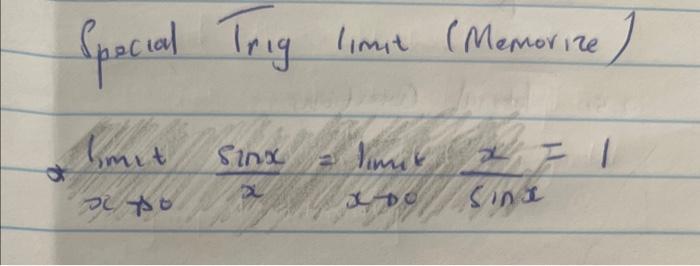 Special Trig limit (Memorize)
* limit sinx/x = limit x/sinx = 1
x→0 x→0